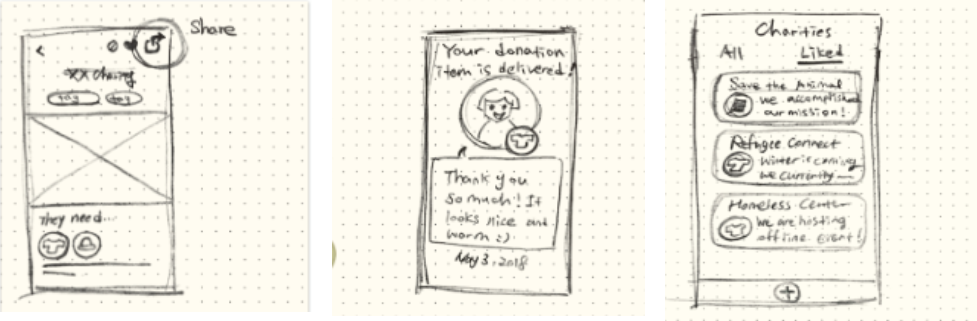 Share
XX Charity
tag tag
They need...
Your donation
item is delivered!
Thank you
so much! It
looks nice and
warm :)
May 3, 2018
Charities
All Liked
Save the Animal
We accomplished
our mission!
Refugee Connect
Winter is coming
We currently
Homeless Center
We are hosting
offline event!